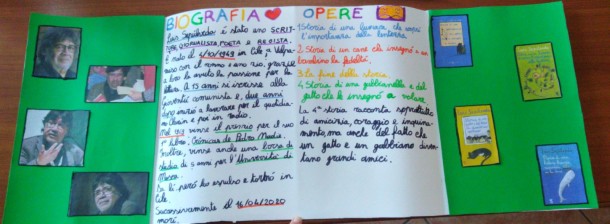 BIOGRAFIA
Luis Sepúlveda è stato uno SCRIT-
TORE, GIORNALISTA, POETA e REGISTA.
È nato il 4/10/1949 in Cile a Valpa-
raiso con il nonno e uno zio, grazie
a loro ha avuto la passione per la
lettura. A 15 anni si iscrisse alla
gioventù comunista e, due anni
dopo iniziò a lavorare per il quotidia-
no Clarin e poi in radio.
Nel 1969 vinse il premio per il suo
1° libro, Crónicas de Pedro Nadie.
Inoltre, vinse anche una borsa di
studio di 5 anni per l'Università di
Mosca.
Da lì però fu espulso e tornò in
Cile.
Successivamente il 16/04/2020
morì.
OPERE
1. Storia di una lumaca che scoprì
l'importanza della lentezza.
2. Storia di un cane che insegnò a un
bambino la fedeltà.
3. La fine della storia.
4. Storia di una gabbianella e del
gatto che le insegnò a volare.
La 4° storia racconta soprattutto
di amicizia, coraggio e inquina-
mento, ma anche del fatto che
un gatto e un gabbiano diven-
tano grandi amici.